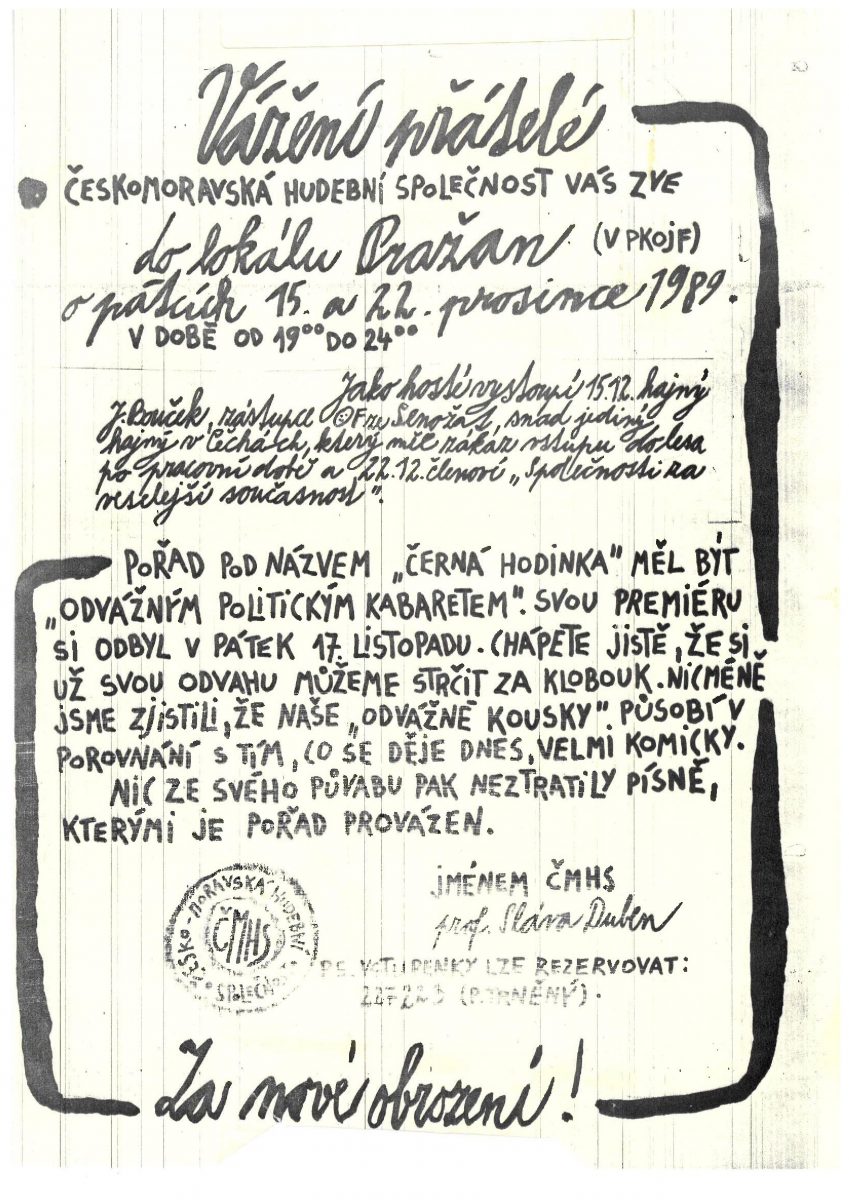 Vážení přátelé
ČESKOMORAVSKÁ HUDEBNÍ SPOLEČNOST VÁS ZVE
do lokálu Pražan (V PKOJF)
o pátcích 15. a 22. prosince 1989.
V DOBĚ OD 19⁰⁰ DO 24⁰⁰
Jako hosté vystoupí 15.12. hajný
J. Bouček, zástupce OF ze Senožat, snad jediný
hajný v Čechách, který měl zákaz vstupu do lesa
po pracovní době a 22.12. členové „Společnosti za
veselejší současnost".
POŘAD POD NÁZVEM „ČERNÁ HODINKA" MĚL BÝT
„ODVÁŽNÝM POLITICKÝM KABARETEM". SVOU PREMIÉRU
SI ODBYL V PÁTEK 17. LISTOPADU. CHÁPETE JISTĚ, ŽE SI
UŽ SVOU ODVAHU MŮŽEME STRČIT ZA KLOBOUK. NICMÉNĚ
JSME ZJISTILI, ŽE NAŠE „ODVÁŽNÉ KOUSKY" PŮSOBÍ V
POROVNÁNÍ S TÍM, CO SE DĚJE DNES, VELMI KOMICKY.
NIC ZE SVÉHO PŮVABU PAK NEZTRATILY PÍSNĚ,
KTERÝMI JE POŘAD PROVÁZEN.
JMÉNEM ČMHS
prof. Sláva Duben
ČESKO-MORAVSKÁ HUDEBNÍ
ČMHS
SPOLEČNOST
PS. VSTUPENKY LZE REZERVOVAT:
(P. TRNĚNÝ).
Za nové obrození!